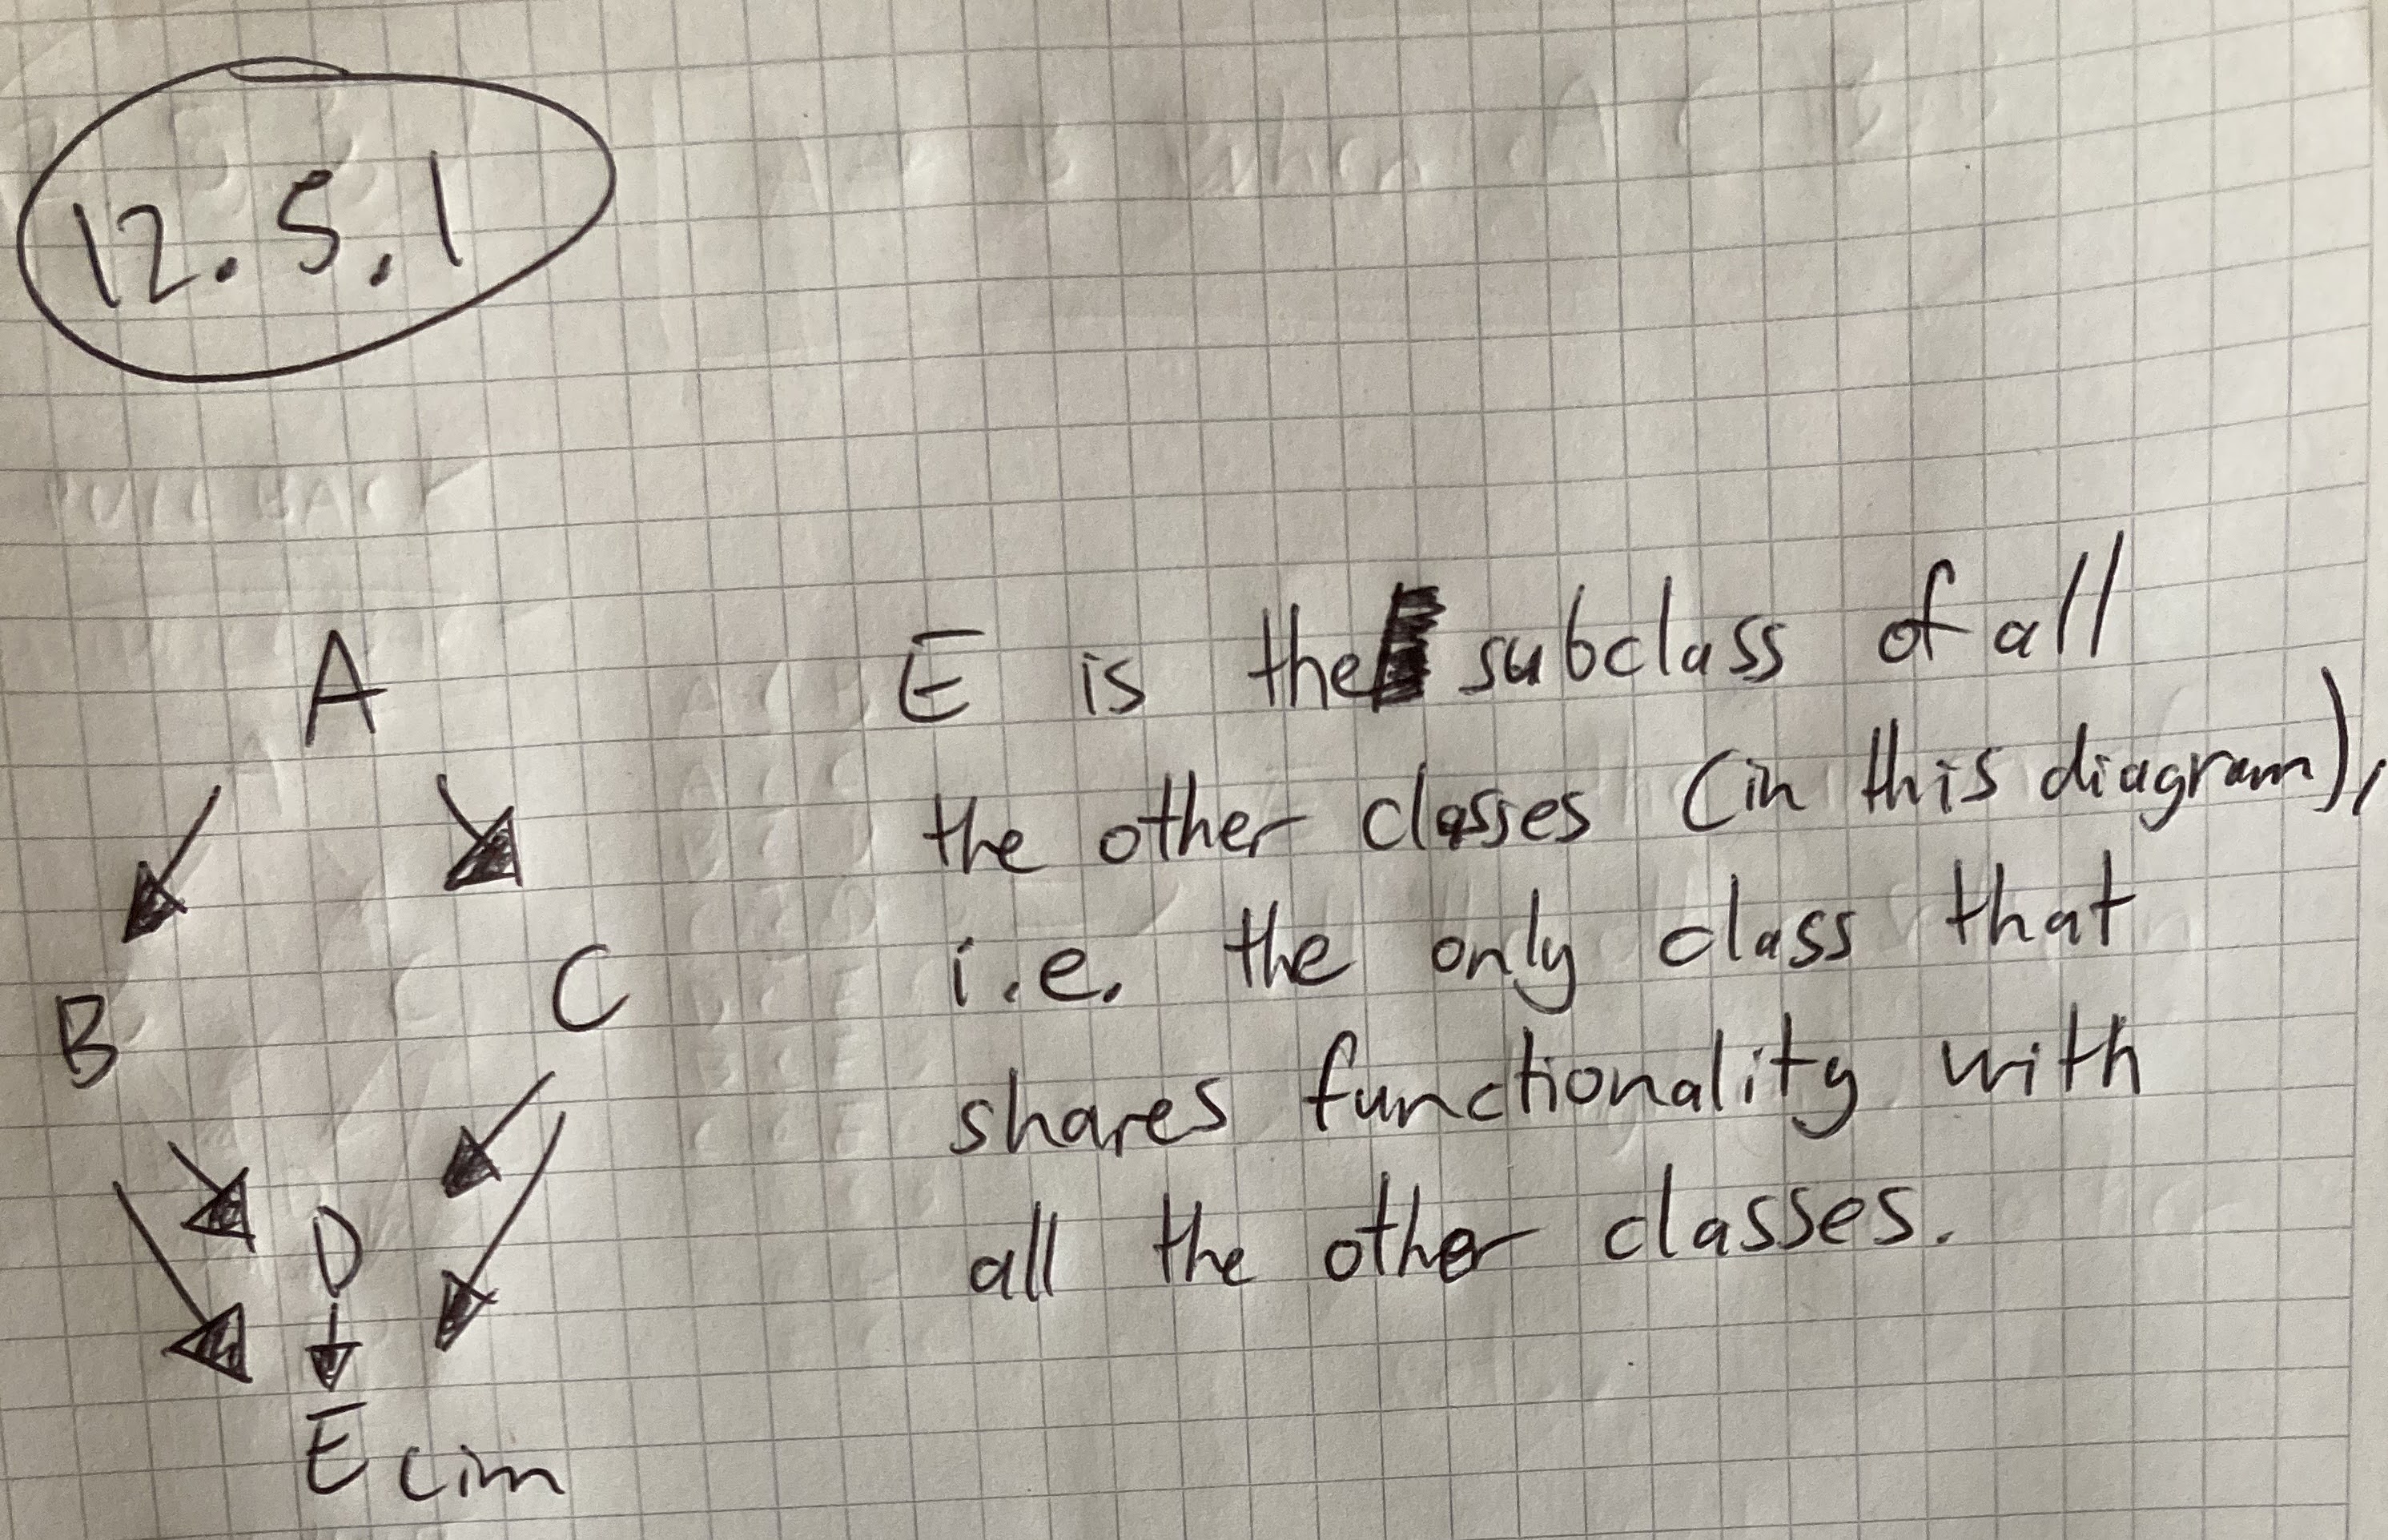 12.5.1
A
B
C
D
E
E is the subclass of all
the other classes (in this diagram),
i.e. the only class that
shares functionality with
all the other classes.